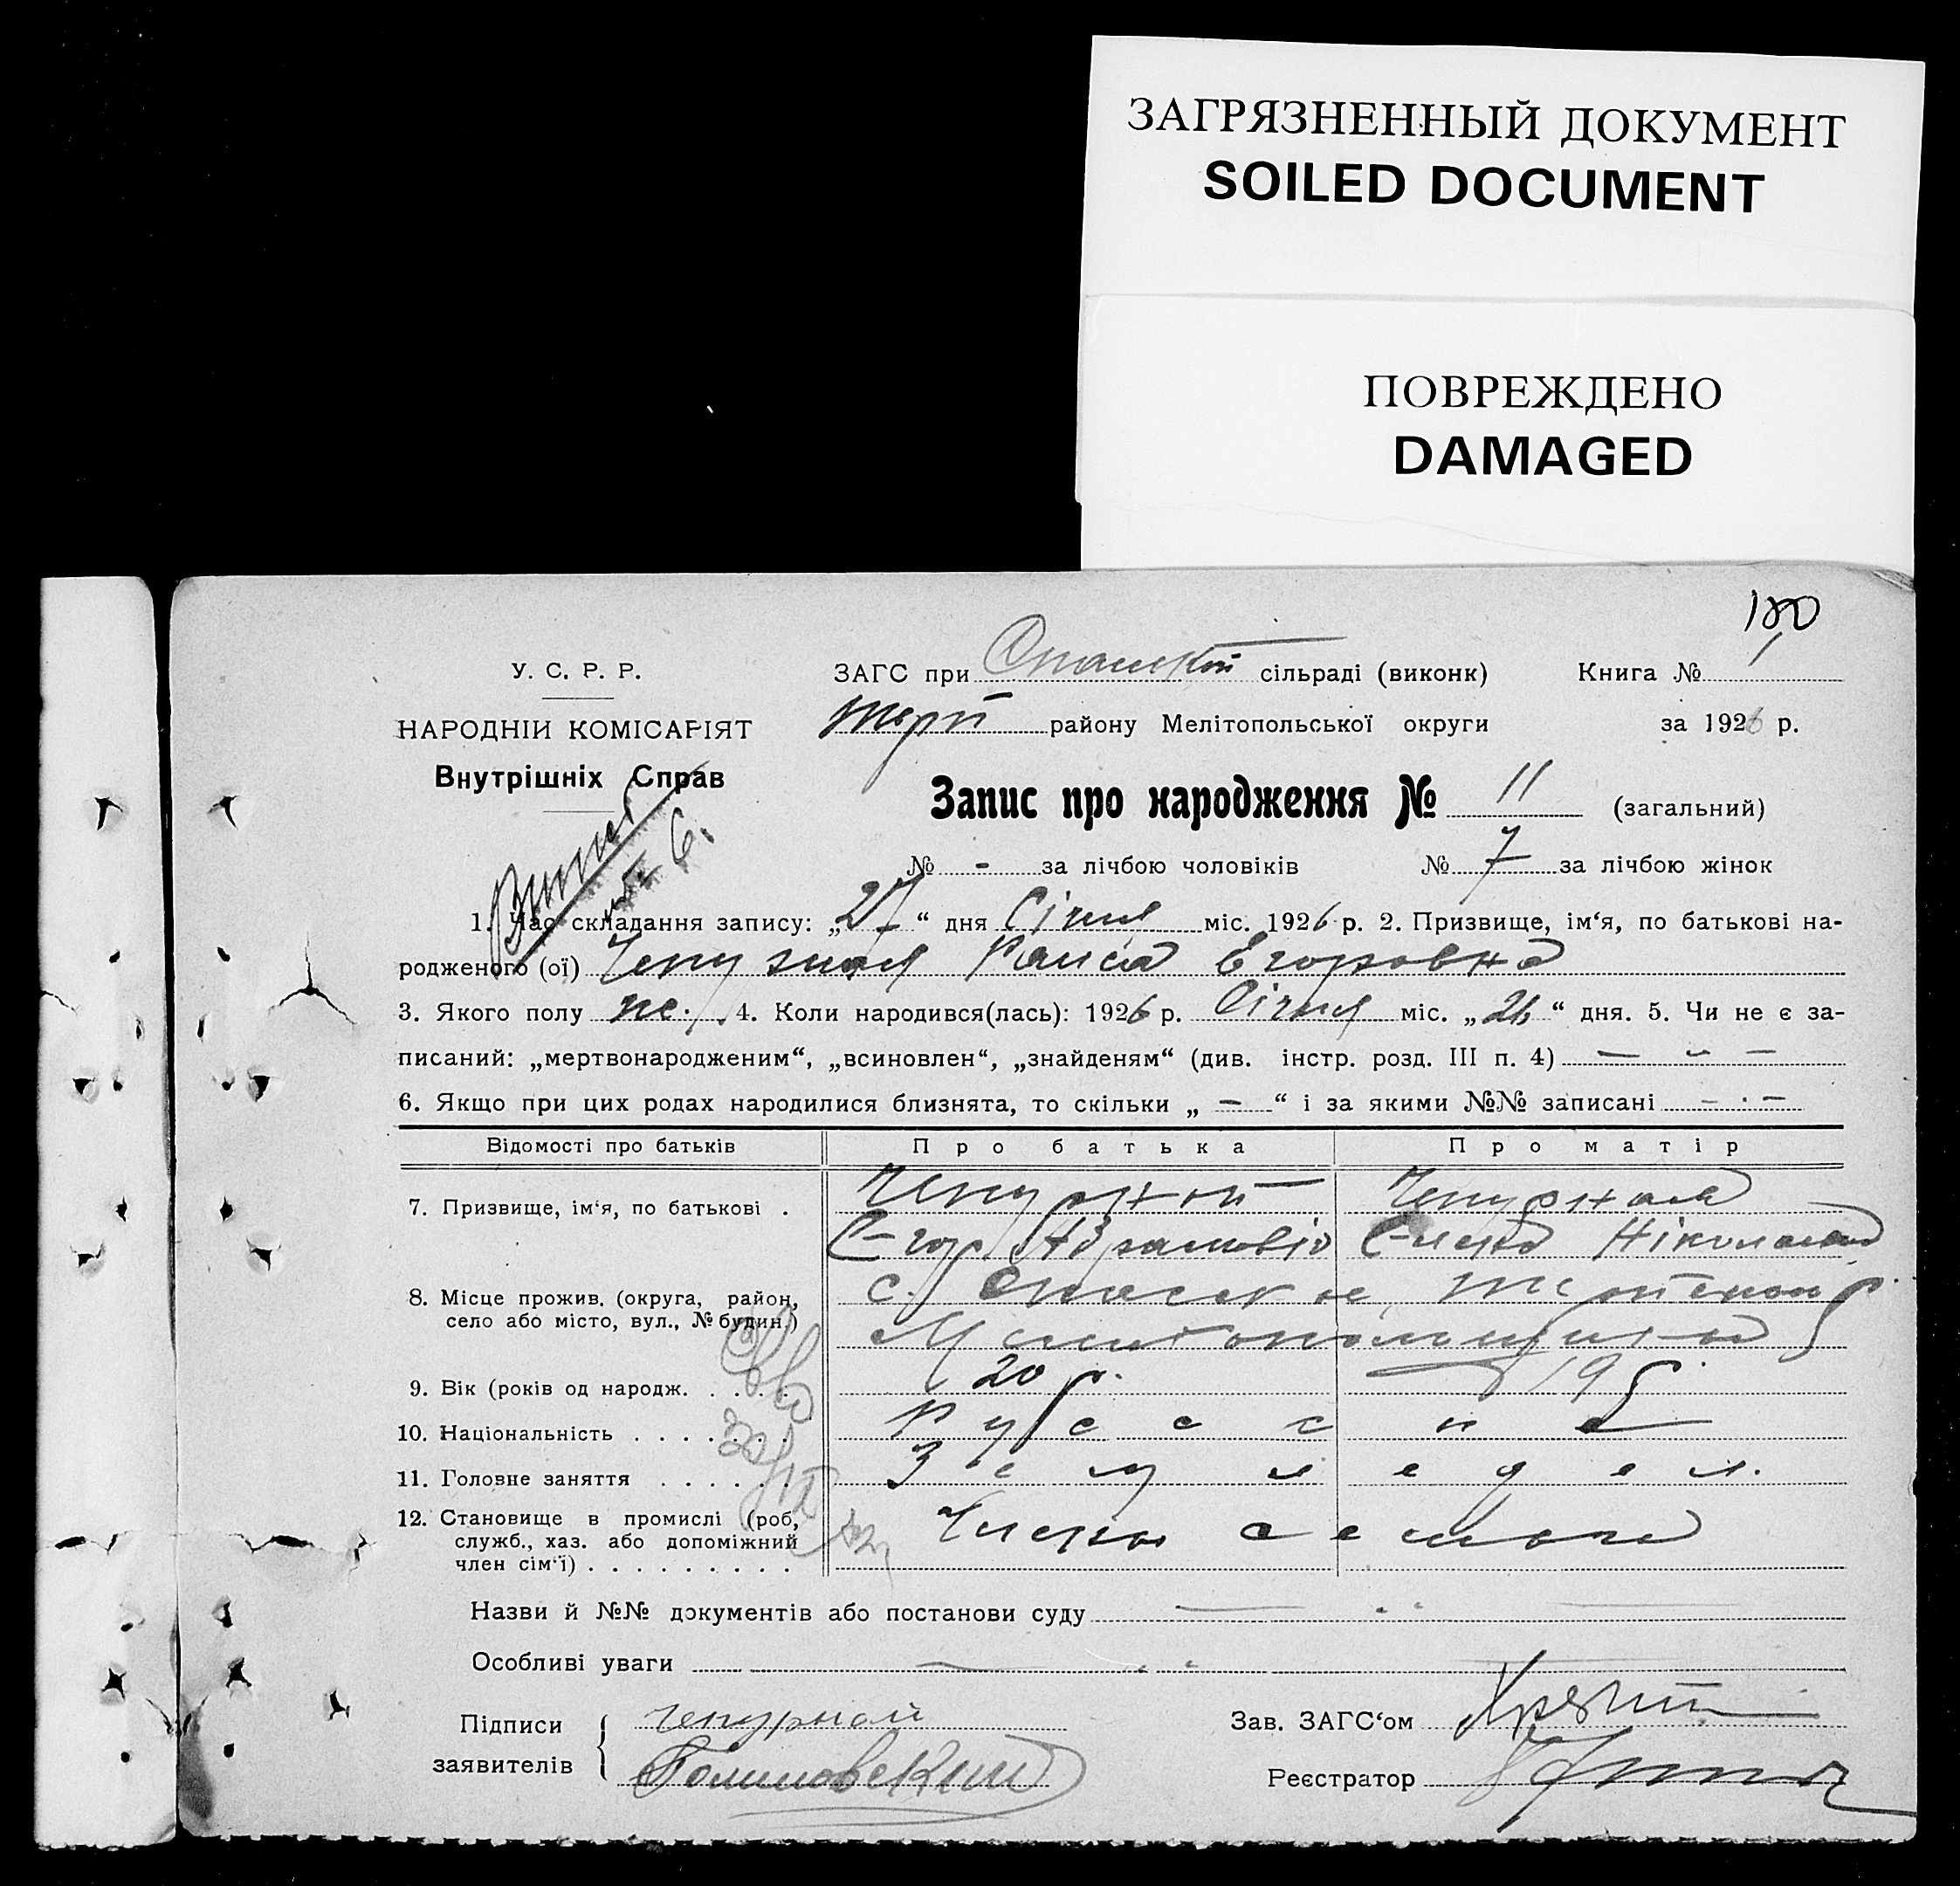 ЗАГРЯЗНЕННЫЙ ДОКУМЕНТ
SOILED DOCUMENT
ПОВРЕЖДЕНО
DAMAGED
180
У. С. Р. Р.
НАРОДНІЙ КОМІСАРІЯТ
Внутрішніх Справ
ЗАГС при Спаській сільраді (виконк) Книга № 1
району Мелітопольської округи за 1926 р.
Запис про народження № 11 (загальний)
№ - за лічбою чоловіків № 7 за лічбою жінок
1. Час складання запису: „27“ дня Січня міс. 1926 р. 2. Призвище, ім‘я, по батькові на-
родженого (ої) Чепурная Раиса Егоровна
3. Якого полу же. 4. Коли народився(лась): 1926 р. Січня міс. „26“ дня. 5. Чи не є за-
писаний: „мертвонародженим“, „всиновлен“, „знайденям“ (див. інстр. розд. III п. 4) — — —
6. Якщо при цих родах народилися близнята, то скільки „ — “ і за якими №№ записані — · —
Відомості про батьків Про батька Про матір
7. Призвище, ім‘я, по батькові . Чепурной Чепурная
Егор Єлена
8. Місце прожив. (округа, район, с. Спаское
село або місто, вул., № будин.)
9. Вік (років од народж. . . . . 20 р. 19 р.
10. Національність . . . . . . . Русские
11. Головне заняття . . . . . . Земледел.
12. Становище в промислі (роб, Члены
служб., хаз. або допоміжний
член сім‘ї) . . . . . . . . .
Назви й №№ документів або постанови суду
Особливі уваги
Підписи чепурной Зав. ЗАГС‘ом
заявителів Реєстратор